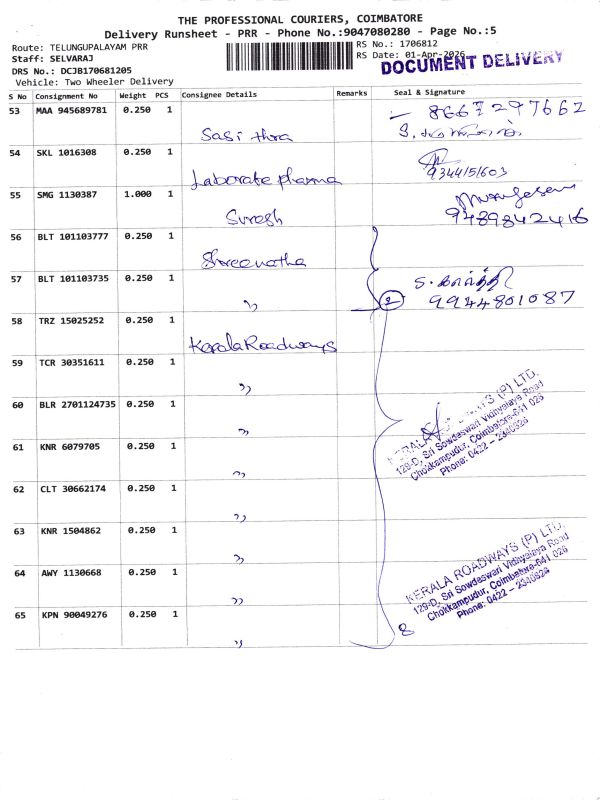 THE PROFESSIONAL COURIERS, COIMBATORE
Delivery Runsheet - PRR - Phone No.:9047080280 - Page No.:5
Route: TELUNGUPALAYAM PRR
RS No.: 1706812
Staff: SELVARAJ
RS Date: 01-Apr-2026
DOCUMENT DELIVERY
DRS No.: DCJB170681205
Vehicle: Two Wheeler Delivery
S No Consignment No Weight PCS Consignee Details Remarks Seal & Signature
53 MAA 945689781 0.250 1 8667297662
Sasi thra
54 SKL 1016308 0.250 1
Laborate pharma 9344151603
55 SMG 1130387 1.000 1 Murugesan
Suresh 9489842416
56 BLT 101103777 0.250 1
Shreenatha
57 BLT 101103735 0.250 1
" 2 9944801087
58 TRZ 15025252 0.250 1
Kerala Roadways
59 TCR 30351611 0.250 1
"
60 BLR 2701124735 0.250 1
"
KERALA ROADWAYS (P) LTD.
129-D, Sri Sowdeswari Vidhyalaya Road
Chokkampudur, Coimbatore-641 026
Phone: 0422 - 2340626
61 KNR 6079705 0.250 1
"
62 CLT 30662174 0.250 1
"
63 KNR 1504862 0.250 1
"
64 AWY 1130668 0.250 1
"
KERALA ROADWAYS (P) LTD.
129-D, Sri Sowdeswari Vidhyalaya Road
Chokkampudur, Coimbatore-641 026
Phone: 0422 - 2340626
65 KPN 90049276 0.250 1
" 8